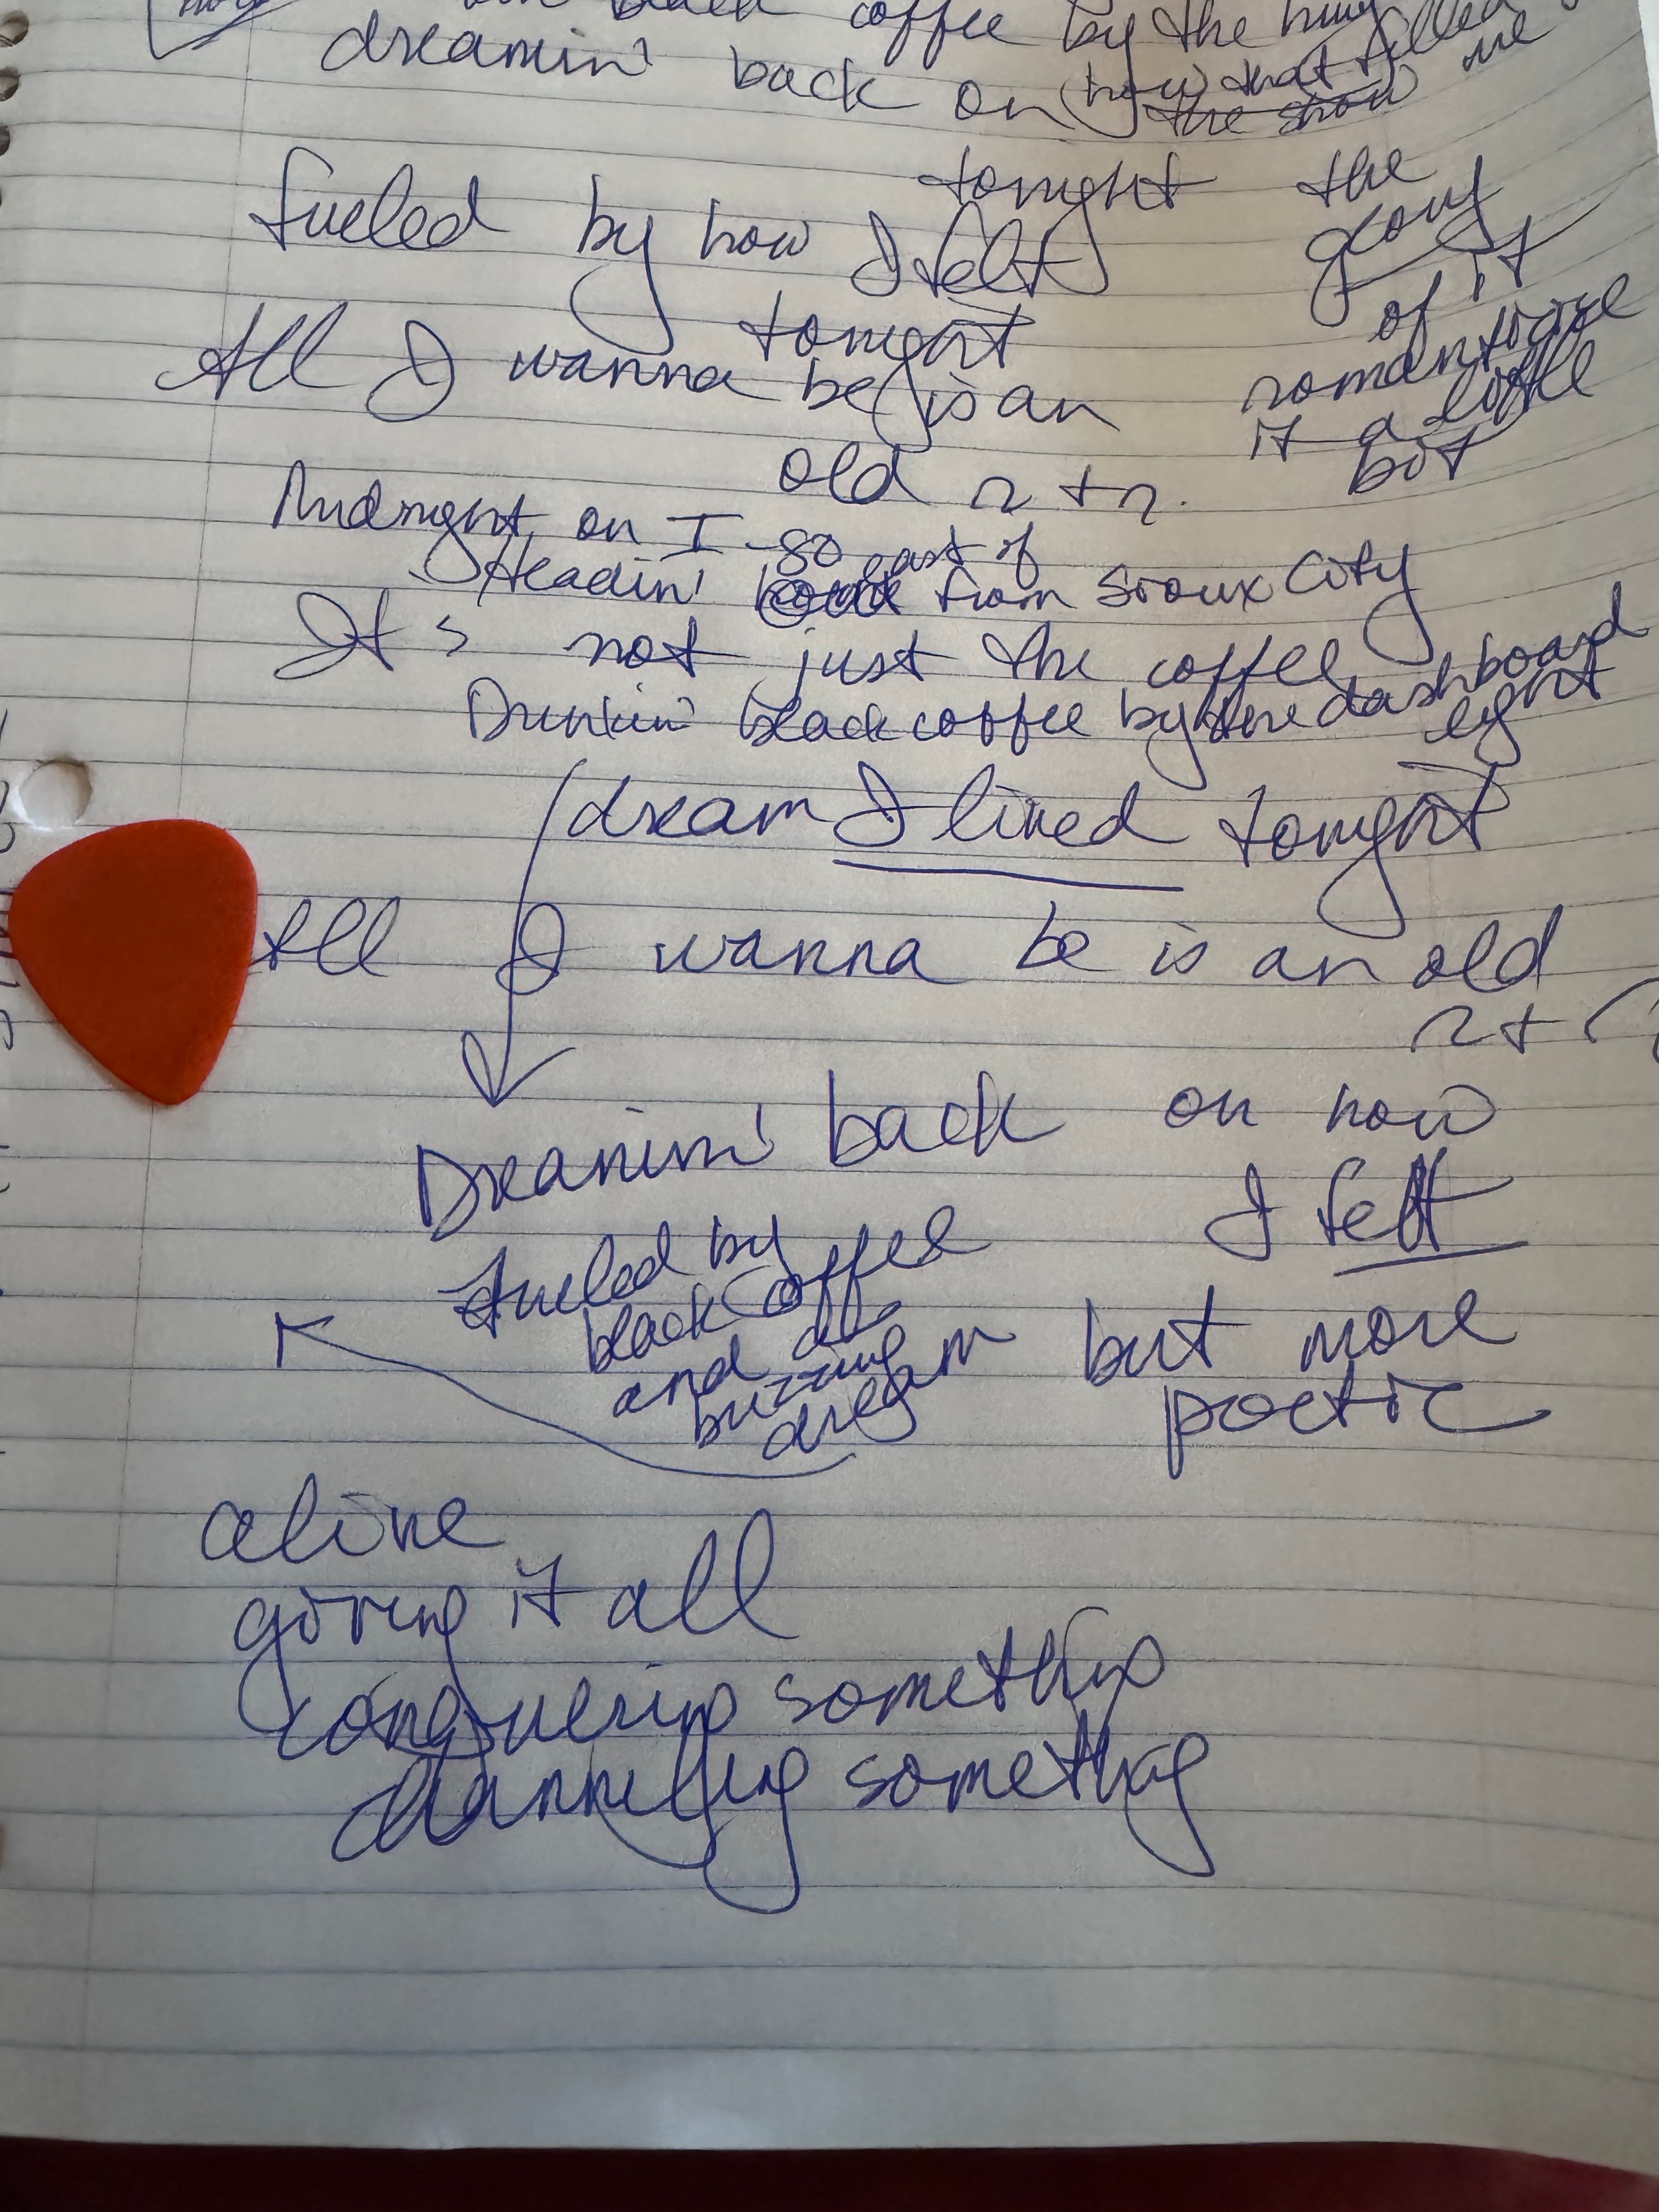 black coffee by the
dreamin' back on how that filled me
the show
tonight
fueled by how I felt
tonight
the
glory
of it
romanticize
it a little
bit
All I wanna be is an
old r + r.
Midnight on I-80 east of
Headin' from Sioux City
It's not just the coffee
Drinkin' black coffee by the dashboard
light
dream I lived tonight
All I wanna be is an old
r + r
Dreamin' back on how
I felt
fueled by
black coffee
and a
buzzing
dream
but more
poetic
alive
giving it all
conquering something
channeling something